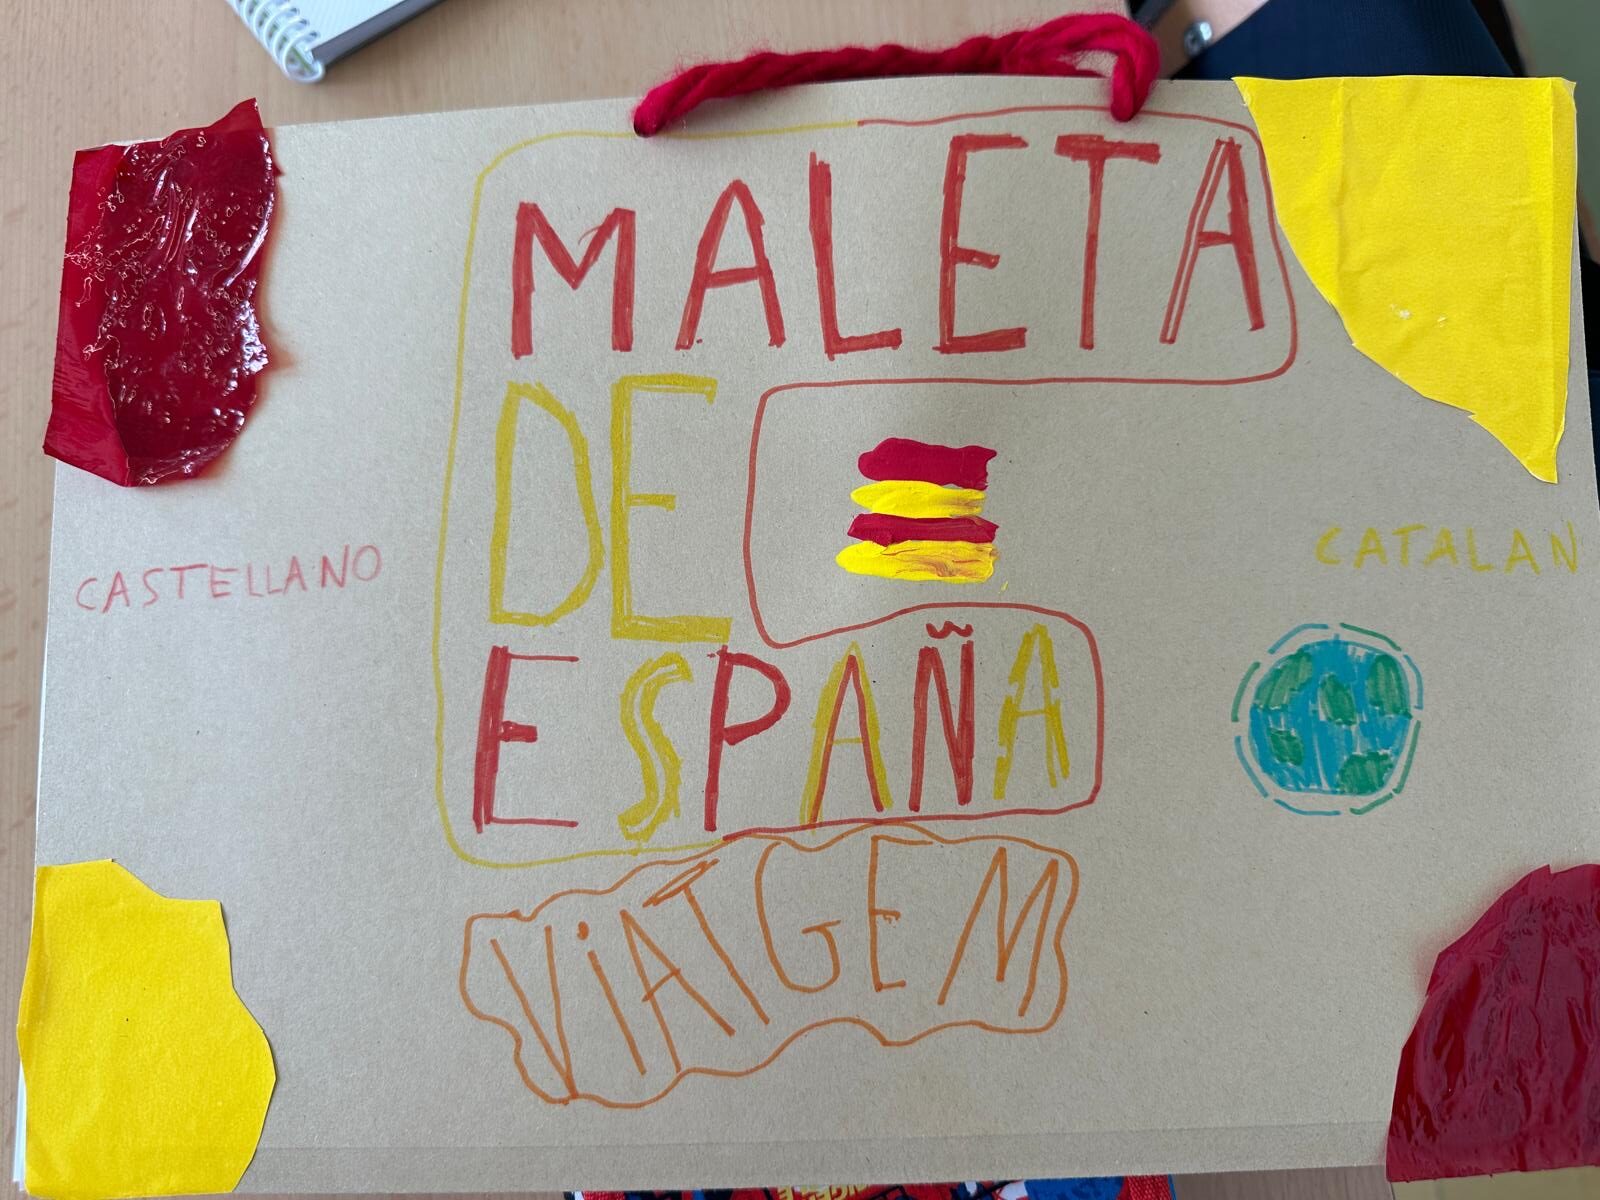 MALETA
DE
ESPAÑA
CASTELLANO
CATALAN
ViATGEM